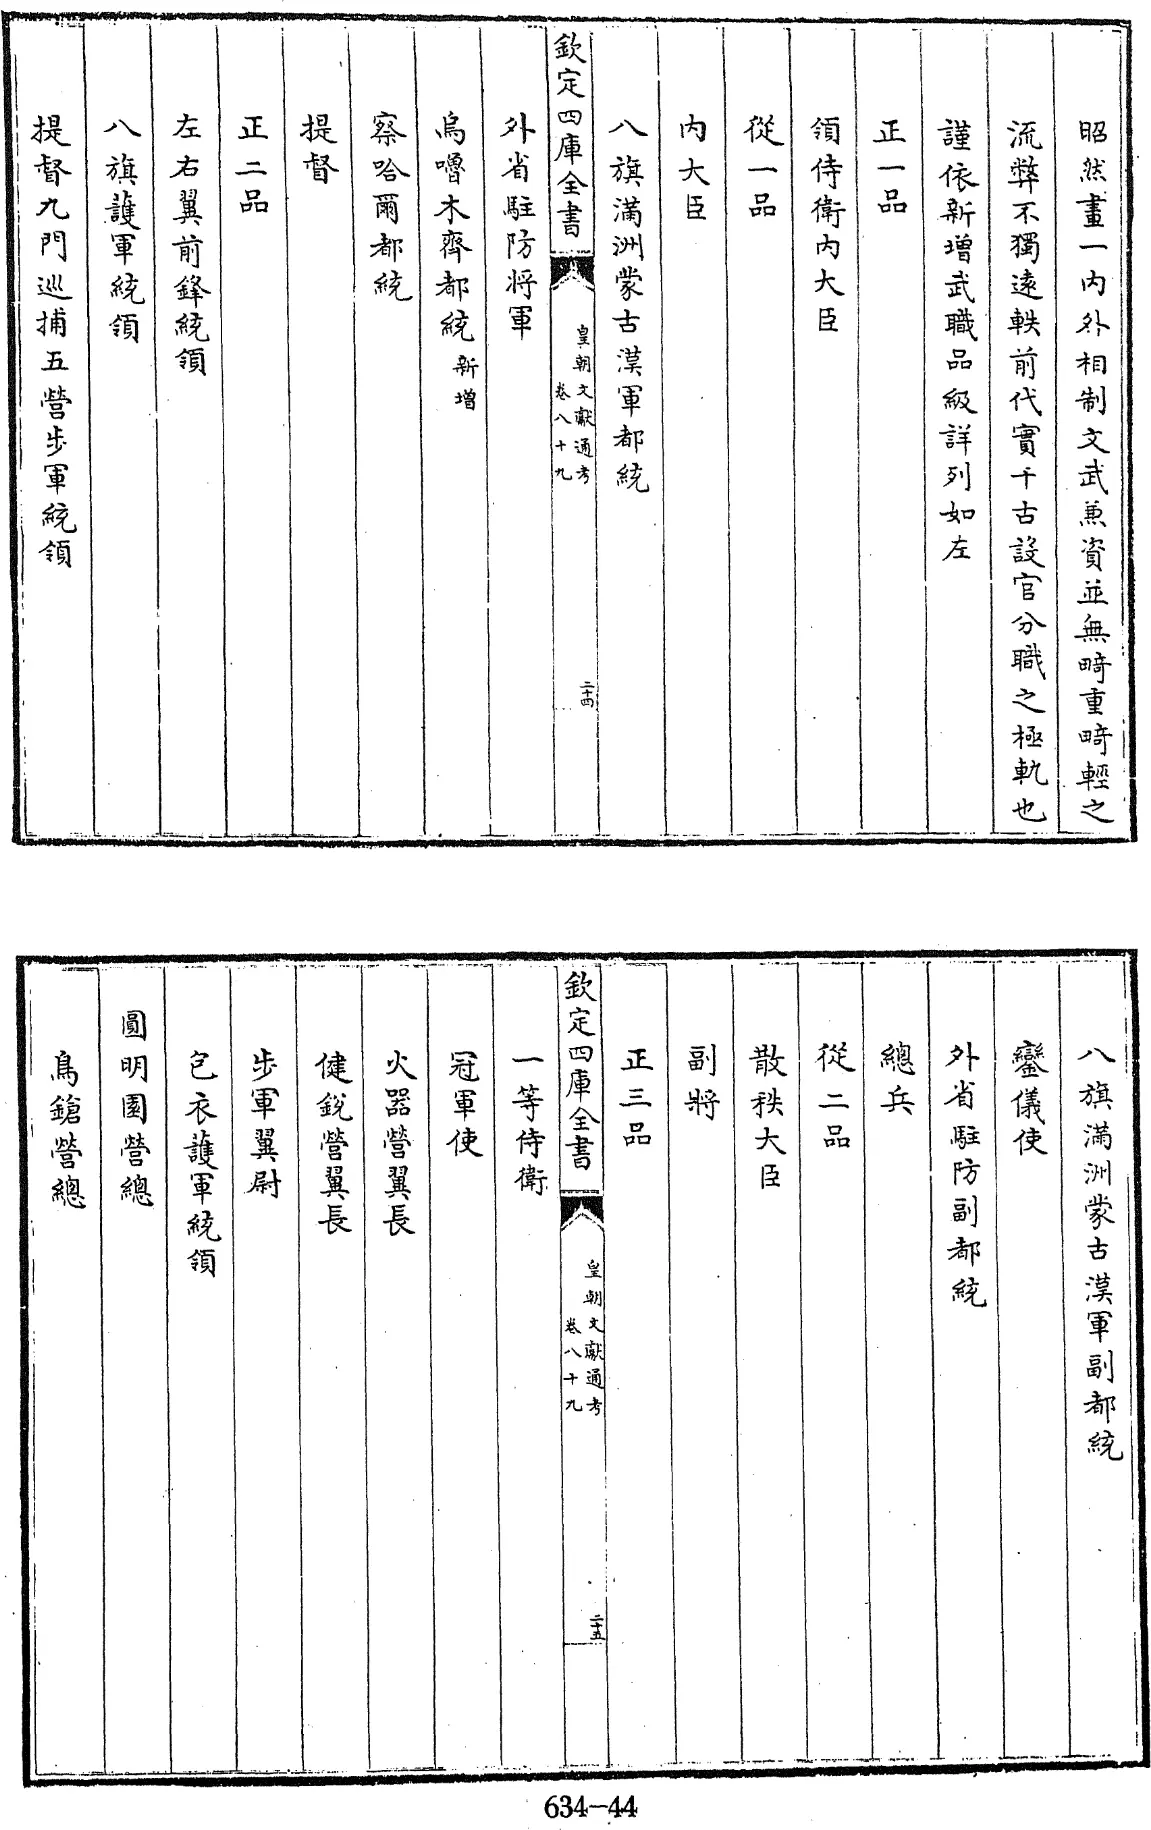 昭然畫一内外相制文武兼資並無畸重畸輕之
流弊不獨遠軼前代實千古設官分職之極軌也
謹依新增武職品級詳列如左
正一品
領侍衛内大臣
從一品
内大臣
八旗滿洲蒙古漢軍都統
欽定四庫全書
皇朝文獻通考
卷八十九
二十四
外省駐防将軍
烏嚕木齊都統新增
察哈爾都統
提督
正二品
左右翼前鋒統領
八旗護軍統領
提督九門巡捕五營步軍統領
八旗滿洲蒙古漢軍副都統
鑾儀使
外省駐防副都統
總兵
從二品
散秩大臣
副將
正三品
欽定四庫全書
皇朝文獻通考
卷八十九
二十五
一等侍衛
冠軍使
火器營翼長
健銳營翼長
步軍翼尉
包衣護軍統領
圓明園營總
鳥鎗營總
634-44